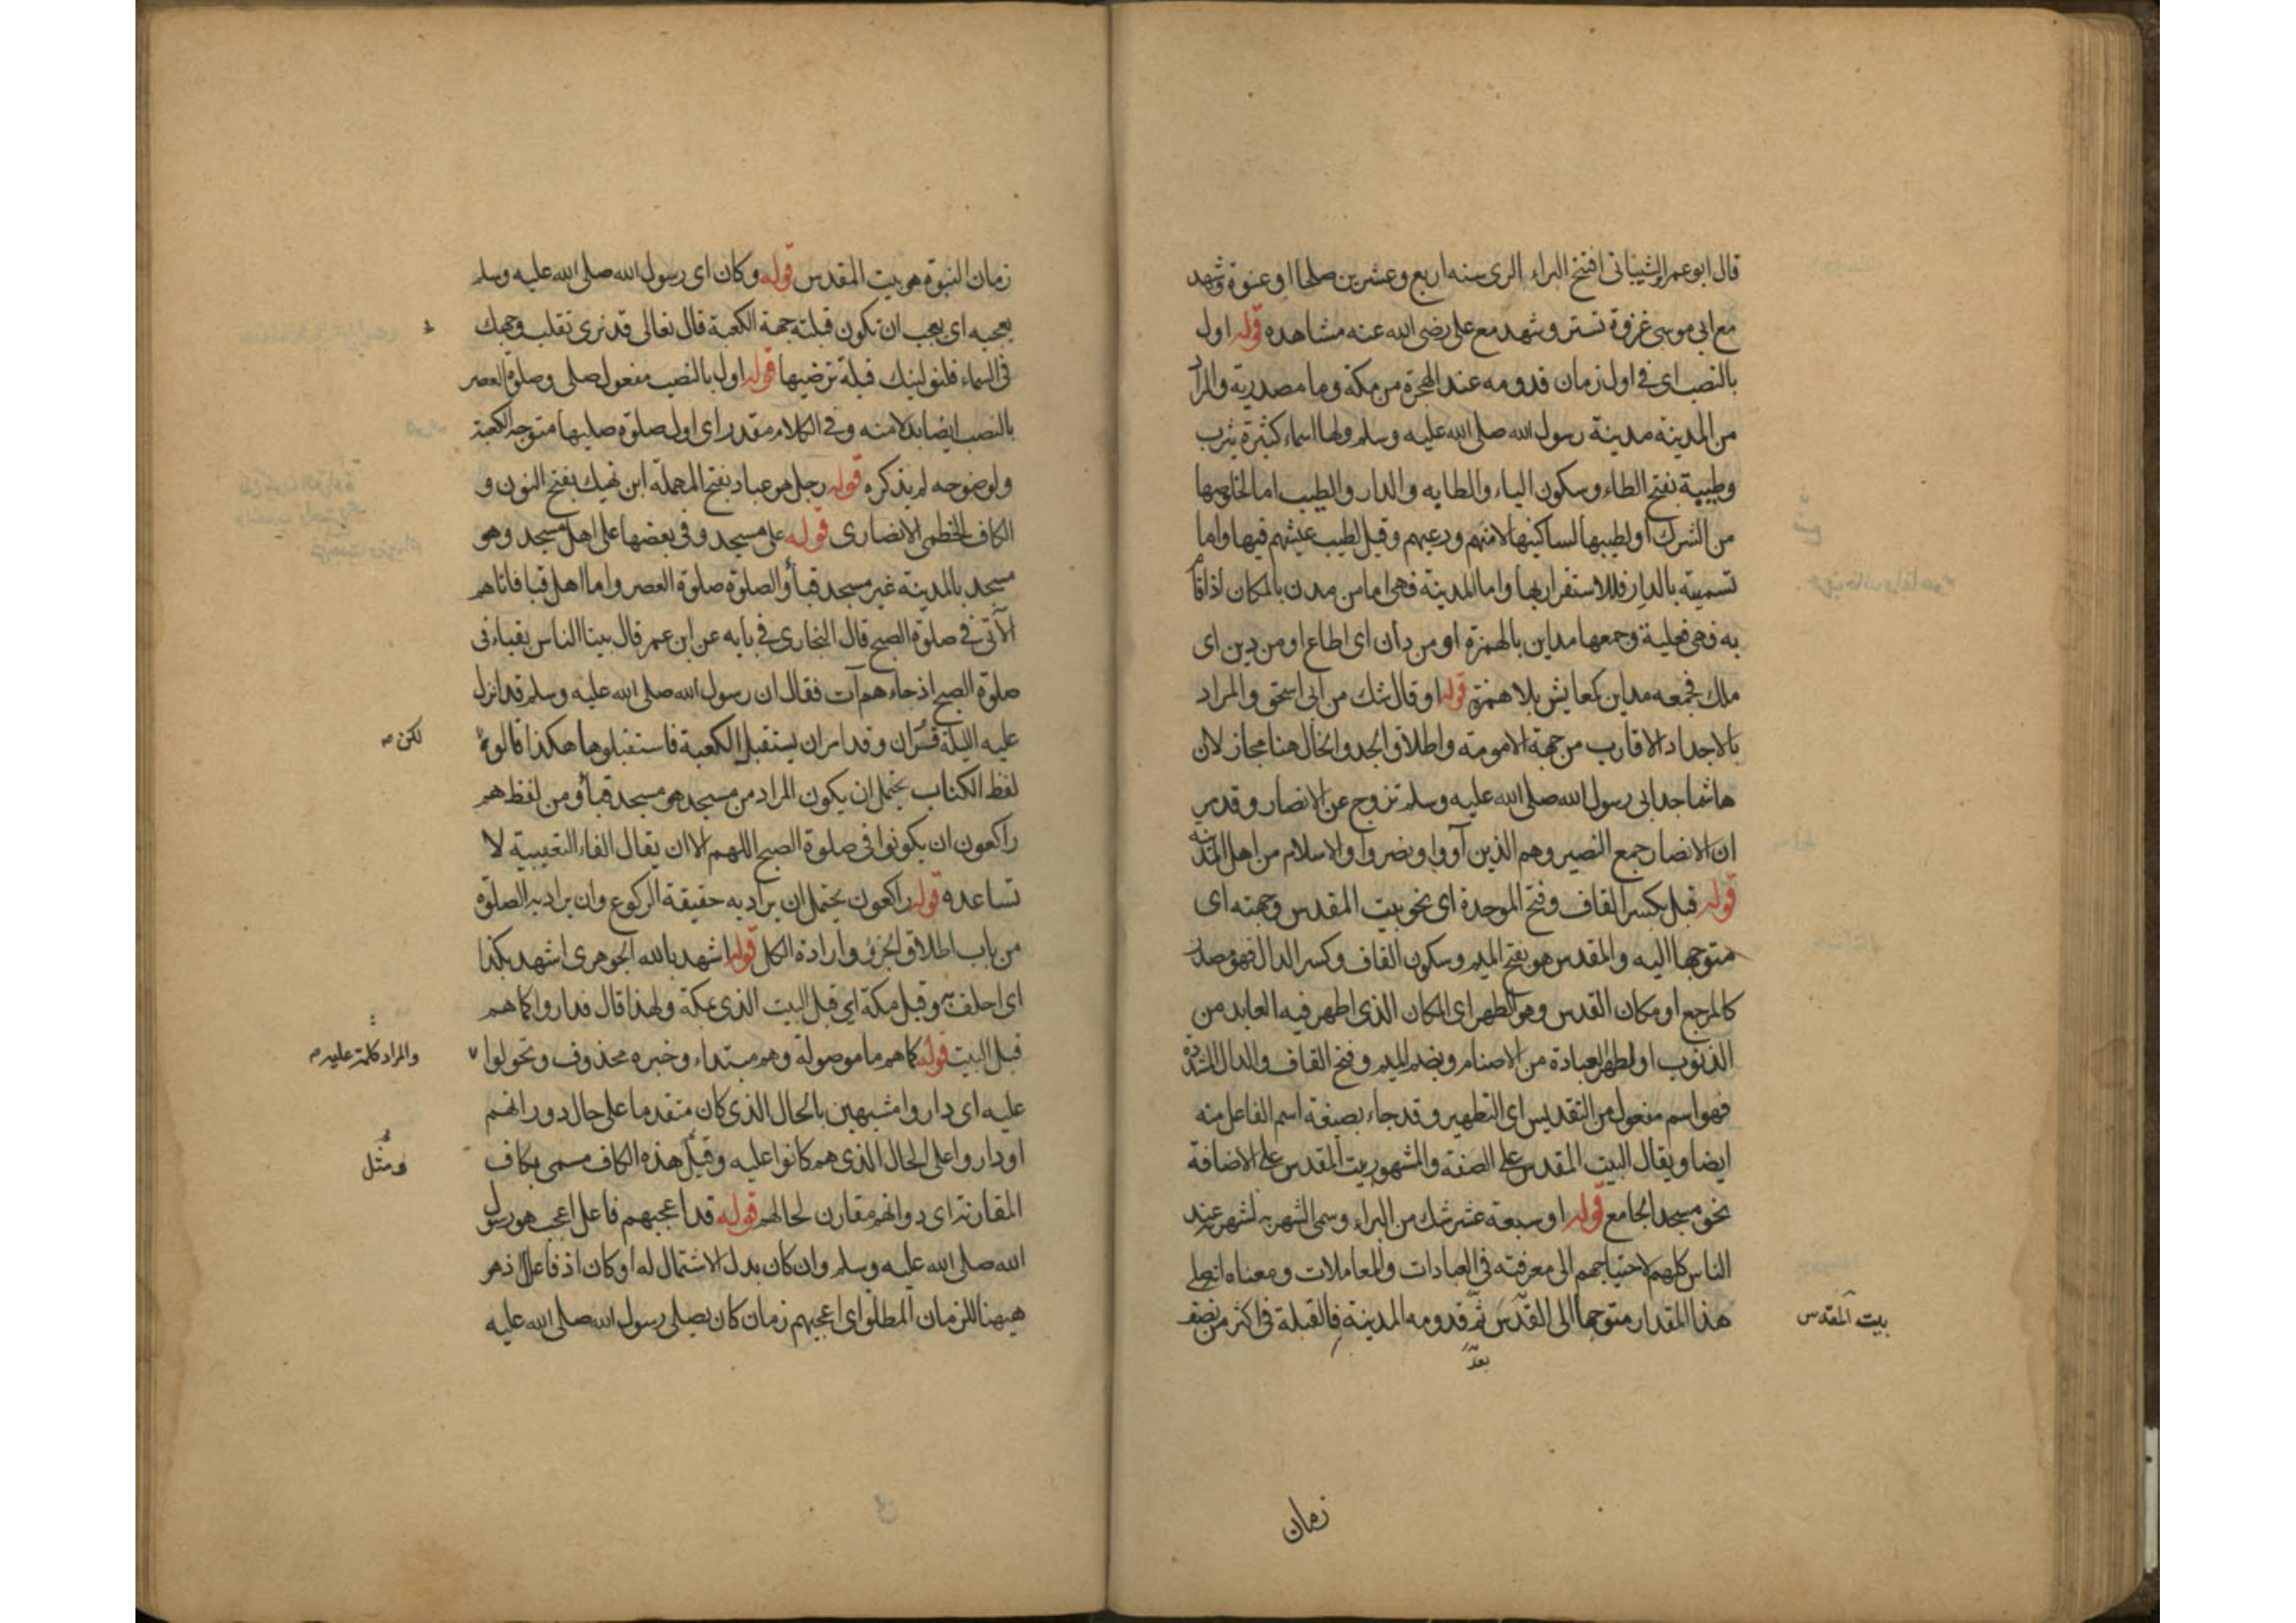 قال ابو عمر الشيباني افتتح البراء الري سنه اربع وعشرين صلحا او عنوة وشهد
مع ابي موسى غزوة تستر وشهد مع على رضى الله عنه مشاهده قوله اول
بالنصب اى في اول زمان قدومه عند الهجرة من مكة وما مصدرية والمراد
من المدينه مدينة رسول الله صلى الله عليه وسلم ولها اسماء كثيرة يثرب
وطيبة بفتح الطاء وسكون الياء والطابه والدار والطيب اما لخلوصها
من الشرك او لطيبها لساكنيها لامنهم ودعتهم وقيل لطيب عيشهم فيها واما
تسميته بالدار فللاستقرار بها واما المدينة فهى اما من مدن بالمكان اذا اقام
به فهى فعيلية وجمعها مداين بالهمزة او من دان اى اطاع او من دين اى
ملك فجمعه مداين كمعايش بلا همزة قوله او قال شك من ابى اسحق والمراد
بالاجداد الاقارب من جهة الامومته واطلاق الجد والخال هنا مجاز لان
هاشما جد ابى رسول الله صلى الله عليه وسلم تزوج عن الانصار وقد مر
ان الانصار جمع النصير وهم الذين آووا ونصروا والاسلام من اهل المدينه
قوله قبل بكسر القاف وفتح الموحدة اى نحو بيت المقدس وجهته اى
متوجها اليه والمقدس هو بفتح الميم وسكون القاف وكسر الدال فهو مصدر
كالمرجع او مكان القدس وهو الطهر اى المكان الذى اطهر فيه العابد من
الذنوب او لطهر العبادة من الاصنام وبضم الميم وفتح القاف والدال المشددة
فهو اسم مفعول من التقديس اى التطهير وقد جاء بصيغة اسم الفاعل منه
ايضا ويقال البيت المقدس على الصفة والمشهور بيت المقدس على الاضافة
نحو مسجد الجامع قوله او سبعة عشر شك من البراء وسمى الشهر به لشهرته عند
الناس كلهم لاحتياجهم الى معرفته فى العبادات والمعاملات ومعناه انه صلى
هذا المقدار متوجها الى القدس ثم قدومه المدينة فالقبلة فى اكثر من نصف
بيت المقدس
بعد
زمان
زمان النبوة هو بيت المقدس قوله وكان اى رسول الله صلى الله عليه وسلم
يعجبه اى يحب ان تكون قبلته جهة الكعبة قال تعالى قد نرى تقلب وجهك
فى السماء فلنولينك قبلة ترضيها قوله اول بالنصب مفعول صلى وصلوة العصر
بالنصب ايضا بدلا منه وفى الكلام مقدر اى اول صلوة صليها متوجه الكعبة
ولوضوحه لم يذكره قوله رجل هو عباد بفتح المهملة ابن نهيك بفتح النون و
الكاف الخطمى الانصارى قوله على مسجد وفى بعضها على اهل مسجد وهو
مسجد بالمدينة غير مسجد قبأ والصلوة صلوة العصر واما اهل قبا فاتاهم
الآتى فى صلوة الصبح قال البخارى فى بابه عن ابن عمر قال بينا الناس بقباء فى
صلوة الصبح اذ جاءهم آت فقال ان رسول الله صلى الله عليه وسلم قد انزل
عليه الليلة قرآن وقد امر ان يستقبل الكعبة فاستقبلوها هكذا قالوه
لكن صح
لفظ الكتاب يحتمل ان يكون المراد من مسجد هو مسجد قبأ ومن لفظ هم
راكعون ان يكونوا فى صلوة الصبح اللهم الا ان يقال الفاء التعقيبية لا
تساعده قوله راكعون يحتمل ان يراد به حقيقة الركوع وان يراد به الصلوة
من باب اطلاق الجزء وارادة الكل قوله اشهد بالله الجوهرى اشهد بكذا
اى احلف به وقبل مكة اى قبل البيت الذى بمكة ولهذا قال فداروا كما هم
قبل البيت قوله كما هم ما موصولة وهم مبتداء وخبره محذوف وتحولوا
والمراد كلمة عليه صح
عليه اى داروا مشبهين بالحال الذى كان متقدما على حال دورانهم
او داروا على الحال الذى هم كانوا عليه وقيل هذه الكاف مسمى بكاف
ومثل
المقارنة اى دوانهم مقارن لحالهم قوله قد اعجبهم فاعل اعجب هو رسول
الله صلى الله عليه وسلم وان كان بدل الاشتمال له او كان اذ فاعل اذ هو
ههنا للزمان المطلق اى اعجبهم زمان كان يصلى رسول الله صلى الله عليه